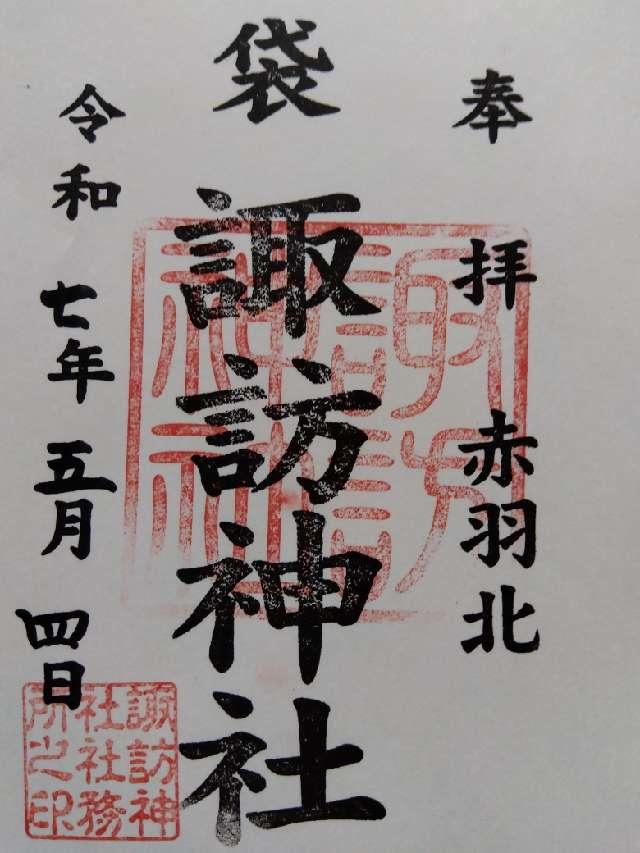 奉拝 赤羽北
袋 諏訪神社
令和七年五月四日
諏訪神社
諏訪神社社務所之印